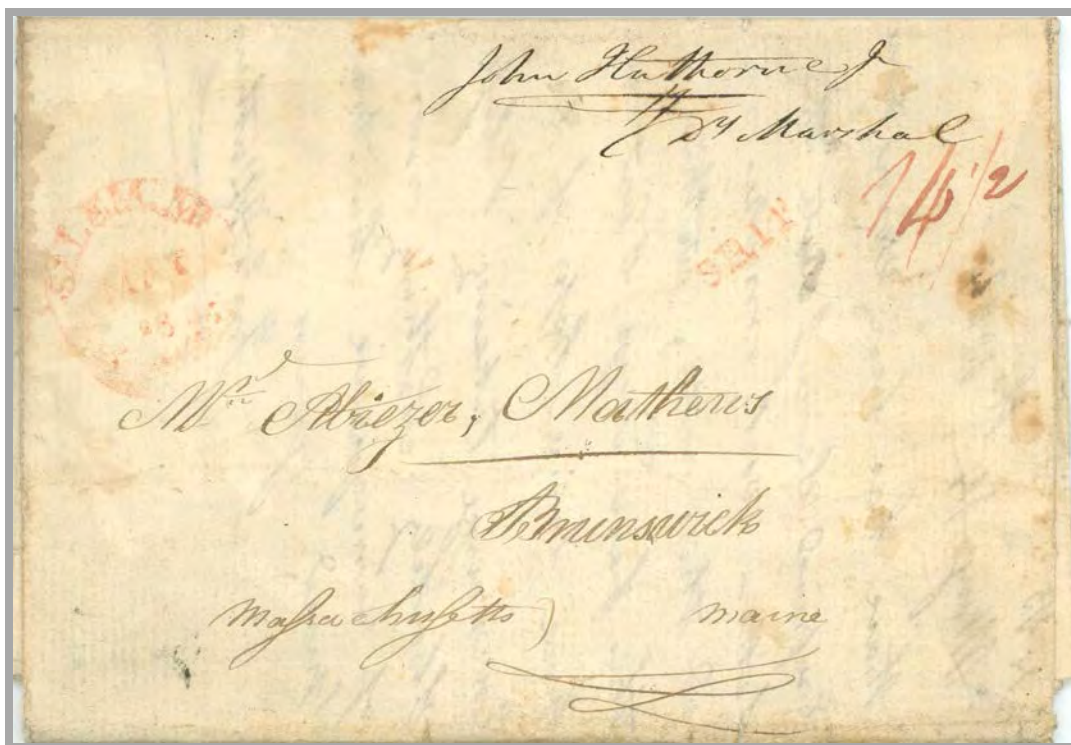 John Hathorne Jr
Dy Marshal
14 1/2
SHIP
SALEM
Mr Abiezer, Mathews
Brunswick
Massachusetts) maine